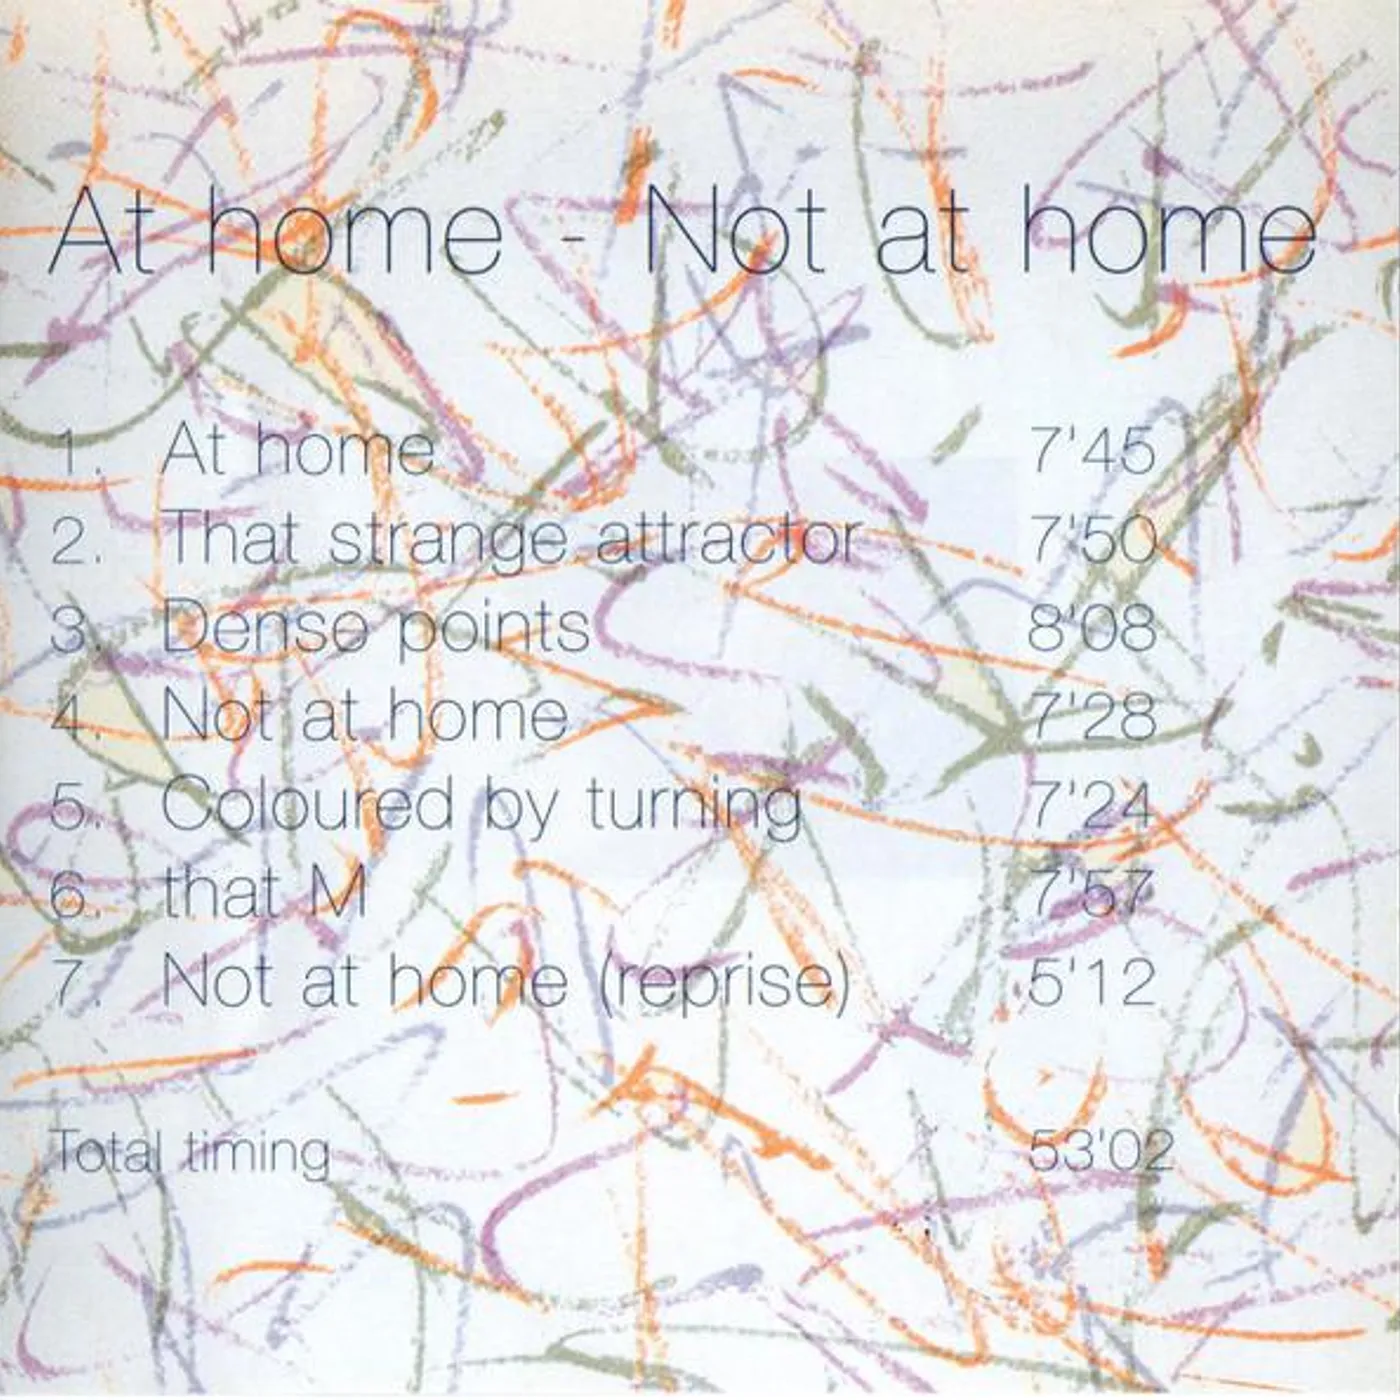 At home - Not at home
1. At home 7'45
2. That strange attractor 7'50
3. Dense points 8'08
4. Not at home 7'28
5. Coloured by turning 7'24
6. that M 7'57
7. Not at home (reprise) 5'12
Total timing 53'02